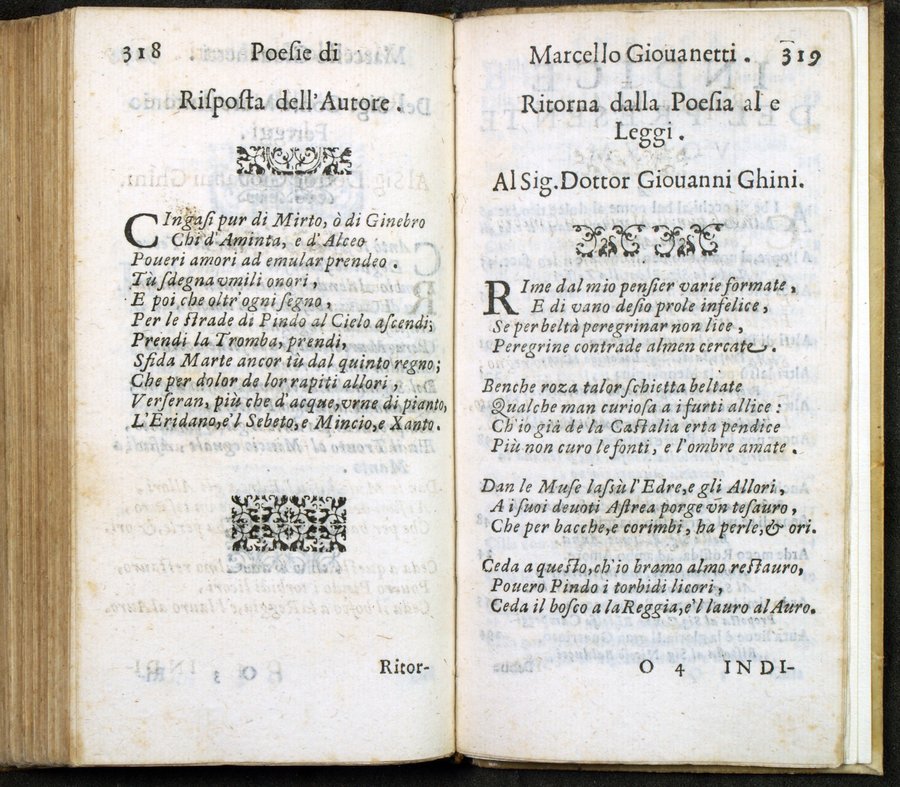 318 Poeſie di
Riſpoſta dell'Autore.
CIngaſi pur di Mirto, ò di Ginebro
Chi d'Aminta, e d'Alceo
Poueri amori ad emular prendeo.
Tù ſdegna vmili onori,
E poi che oltr'ogni ſegno,
Per le ſtrade di Pindo al Cielo aſcendi;
Prendi la Tromba, prendi,
Sfida Marte ancor tù dal quinto regno;
Che per dolor de lor rapiti allori,
Verſeran, più che d'acque, vrne di pianto,
L'Eridano, e'l Sebeto, e Mincio, e Xanto.
Ritor-
Marcello Giouanetti. 319
Ritorna dalla Poeſia al e
Leggi.
Al Sig. Dottor Giouanni Ghini.
RIme dal mio penſier varie formate,
E di vano deſio prole infelice,
Se per beltà peregrinar non lice,
Peregrine contrade almen cercate.
Benche roza talor ſchietta beltate
Qualche man curioſa a i furti allice:
Ch'io già de la Caſtalia erta pendice
Più non curo le fonti, e l'ombre amate.
Dan le Muſe laſsù l'Edre, e gli Allori,
A i ſuoi deuoti Aſtrea porge vn teſauro,
Che per bacche, e corimbi, ha perle, & ori.
Ceda a queſto, ch'io bramo almo reſtauro,
Pouero Pindo i torbidi licori,
Ceda il boſco a la Reggia, e'l lauro al Auro.
O 4 INDI-